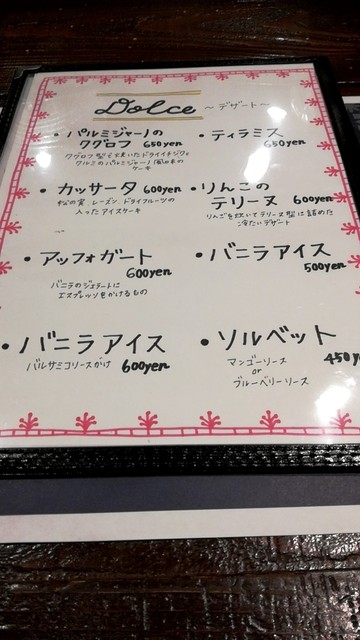 Dolce ～デザート～
・パルミジャーノの
クグロフ 650yen
クグロフ型で焼いたドライイチジクと
クルミのパルミジャーノ風味の
ケーキ
・ティラミス
650yen
・カッサータ 600yen
松の実 レーズン ドライフルーツの
入ったアイスケーキ
・りんごの
テリーヌ 600yen
りんごを炊いてテリーヌ型に詰めた
冷たいデザート
・アッフォガート
600yen
バニラのジェラートに
エスプレッソをかけるもの
・バニラアイス
500yen
・バニラアイス
バルサミコソースがけ 600yen
・ソルベット
マンゴーソース 450y
or
ブルーベリーソース